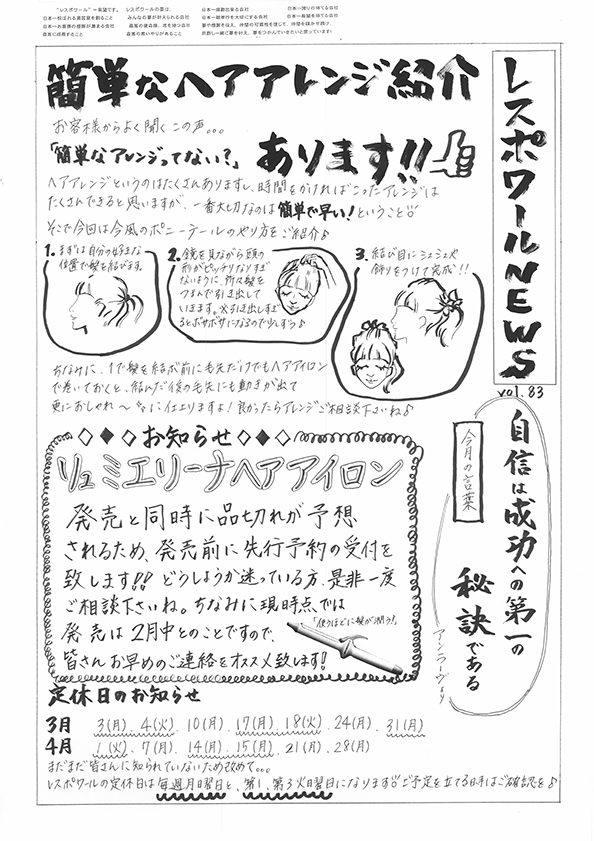 "レスポワール"=希望です。
日本一感動出来る会社
日本一誇りの持てる会社
みんなの夢が叶えられる会社
レスポワールNEWS
vol.83
簡単なヘアアレンジ紹介
お客様からよく聞くこの声。。。
「簡単なアレンジってない?」あります!!
ヘアアレンジというのはたくさんありますし、時間をかければこったアレンジは
たくさんできると思いますが、一番大切なのは簡単で早い!ということ
そこで今回は今風のポニーテールのやり方をご紹介♪
1. まずは自分の好きな
位置で髪を結びます。
2. 鏡を見ながら頭の
形がピッチリなりすぎ
ないように、所々髪を
つまんで引き出して
いきます。※引き出しすぎ
るとボサボサになるので少しずつ♪
3. 結び目にシュシュや
飾りをつけて完成!!
ちなみに、1で髪を結ぶ前に毛先だけでもヘアアイロン
で巻いておくと、結んだ後の毛先にも動きが出て
更におしゃれ〜に仕上りますよ!良かったらアレンジご相談下さいね♪
今月の言葉
自信は成功への第一の
秘訣である
◇◆◇お知らせ◇◆◇
リュミエリーナヘアアイロン
発売と同時に品切れが予想
されるため、発売前に先行予約の受付を
致します!!どうしようか迷っている方、是非一度
ご相談下さいね。ちなみに現時点では
発売は2月中とのことですので、
皆さんお早めのご連絡をオススメ致します!
「使うほどに髪が潤う!」
定休日のお知らせ
3月 3(月)、4(火)、10(月)、17(月)、18(火)、24(月)、31(月)
4月 1(火)、7(月)、14(月)、15(月)、21(月)、28(月)
まだまだ皆さんに知られていないため改めて。。。
レスポワールの定休日は毎週月曜日と、第1、第3火曜日になります ご予定を立てる時はご確認を♪